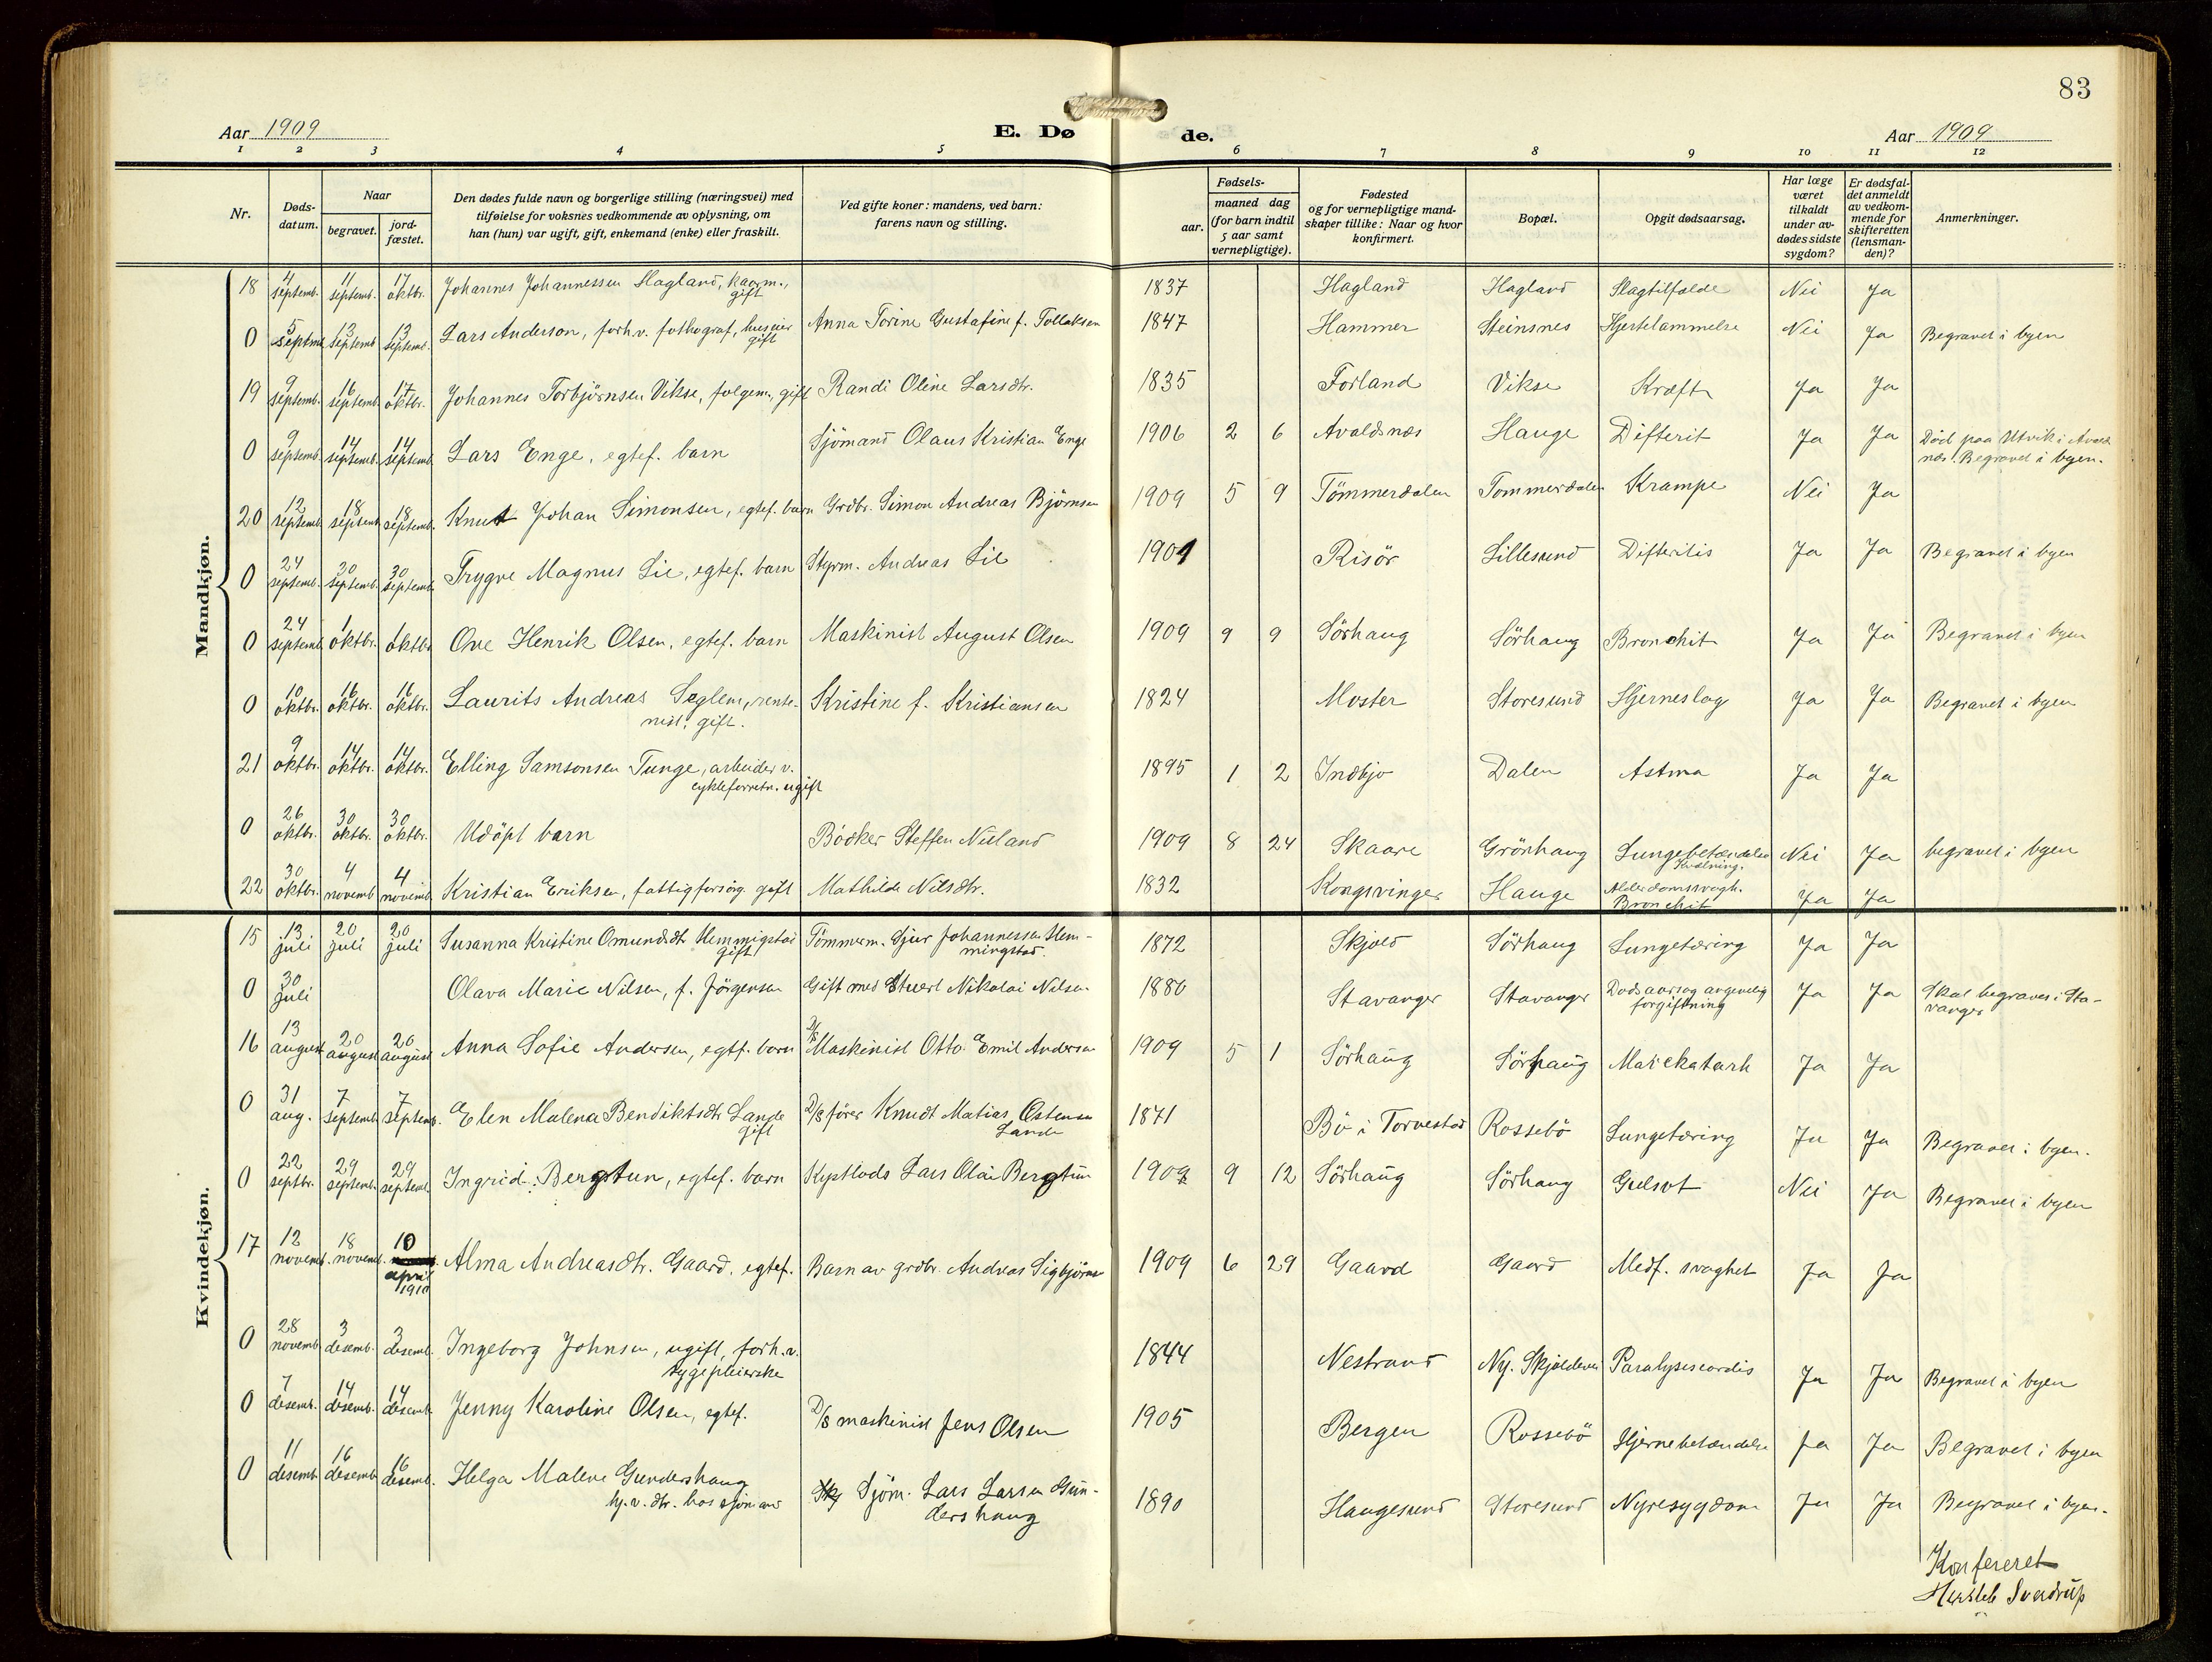 83
Aar 1909 E. Dø de. Aar 1909
1 2 3 4 5 6 7 8 9 10 11 12
Nr. Døds-datum. Naar begravet. jord-fæstet. Den dødes fulde navn og borgerlige stilling (næringsvei) med tilføielse for voksnes vedkommende av oplysning, om han (hun) var ugift, gift, enkemand (enke) eller fraskilt. Ved gifte koner: mandens, ved barn: farens navn og stilling. Fødsels- aar. maaned dag (for barn indtil 5 aar samt vernepligtige). Fødested og for vernepligtige mand-skaper tillike: Naar og hvor konfirmert. Bopæl. Opgit dødsaarsag. Har læge været tilkaldt under av-dødes sidste sygdom? Er dødsfal-det anmeldt av vedkom-mende for skifteretten (lensman-den)? Anmerkninger.
Mandkjøn.
18 4 septemb. 11 septemb. 17 oktbr. Johannes Johannessen Hagland, kaarm., gift 1837 Hagland Hagland Slagtilfælde Nei Ja
0 5 septmb 13 septemb 13 septemb. Lars Anderson, forh.v. fothograf, huseier gift Anna Torine Gustafine f. Tollaksen 1847 Hammer Steinsnes Hjertelammelse Nei Ja Begravet i byen
19 9 septemb. 16 septemb. 17 oktbr. Johannes Torbjørnsen Vikse, folgem., gift Randi Oline Larsdtr. 1835 Forland Vikse Kræft Ja Ja
0 9 septemb. 14 septemb. 14 septemb. Lars Enge, egtef. barn Sjömand Olaus Kristian Enge 1906 2 6 Avaldsnæs Hauge Difterit Ja Ja Död paa Utvik i Avalds næs. Begravet i byen.
20 12 septemb. 18 septemb. 18 septemb. Knut Johan Simonsen, egtef. barn Grdbr. Simon Andreas Björnsen 1909 5 9 Tömmerdalen Tommerdalen Krampe Nei Ja
0 24 septemb. 30 septemb. 30 septemb. Trygve Magnus Lie, egtef. barn Styrm. Andreas Lie 1901 Risör Lillesund Difteritis Ja Ja Begravet i byen
0 24 septemb. 1 oktbr. 1 oktbr Ove Henrik Olsen, egtef. barn Maskinist August Olsen 1909 9 9 Sörhaug Sörhaug Bronchit Ja Ja Begravet i byen
0 10 oktbr. 16 oktbr. 16 oktbr. Laurits Andreas Seglem, rente-nist, gift. Kristine f. Kristiansen 1824 Moster Storesund Hjerneslag Ja Ja Begravet i byen
21 9 oktbr. 14 oktbr. 14 oktbr. Elling Samsonsen Tunge, arbeider v. cykleforretn. ugift 1895 1 2 Indbjo Dalen Astma Ja Ja
0 26 oktbr. 30 oktbr. 30 oktbr. Udöpt barn Bödker Steffen Nieland 1909 8 24 Skaare Grönhaug Lungebetændelse Kvælning. Nei Ja begravet i byen
22 30 oktbr. 4 novemb 4 novemb. Kristian Eriksen, fattigforsörg. gift Mathilde Nilsdtr. 1832 Kongsvinger Hauge Alderdomssvagh. Bronchit Ja Ja
Kvindekjøn.
15 13 juli 20 juli 20 juli Susanna Kristine Omundsdtr Hemmigstad gift Tömmerm. Sjur Johannessen Hem-mingstad. 1872 Skjold Sörhaug Lungetæring Ja Ja
0 30 juli Olava Marie Nilsen, f. Jörgensen Gift med Stuert Nikolai Nilsen 1880 Stavanger Stavanger Dødsaarsag angivelig forgiftning Ja Ja Skal begraves i Sta-vanger
16 13 august 20 august 20 august Anna Sofie Andersen, egtf. barn D/s Maskinist Otto Emil Andersen 1909 5 1 Sörhaug Sörhaug Mavekatarh Ja Ja
0 31 aug. 7 septemb. 7 septemb. Elen Malena Bendiktsdtr Lande gift D/s förer Knudt Matias Ostensen Lande 1871 Bö i Torvestad Rossebö Lungetæring Ja Ja Begravet i byen.
0 22 septbr. 29 septemb. 29 septemb. Ingrid Bergtun, egtef. barn Kystlods Lars Olai Bergtun 1909 9 12 Sörhaug Sörhaug Gulsot Nei Ja Begravet i byen
17 12 novemb. 18 novemb. 10 april 1910 Alma Andreasdtr. Gaard, egtef. Barn av grdbr. Andreas Sigbjörns 1909 6 29 Gaard Gaard Medf. svaghet Ja Ja
0 28 novemb. 3 desemb. 3 desemb. Ingeborg Johnsen, ugift, forh.v. sygepleierske 1844 Nestrand Ny. Skjoldevei Paralysis cordis Ja Ja Begravet i byen
0 7 desemb. 14 desemb. 14 desemb Jenny Karoline Olsen, egtef. D/s maskinist Jens Olsen 1905 Bergen Rossebö Hjernebetændelse Ja Ja Begravet i byen
0 11 desemb 16 desemb 16 desemb. Helga Malene Gundershaug hj.v. dtr. hos sjömand Sjöm. Lars Larsen Gun-dershaug 1890 Haugesund Storesund Nyresygdom Ja Ja Begravet i byen.
Konfereret
Hersleb Sverdrup